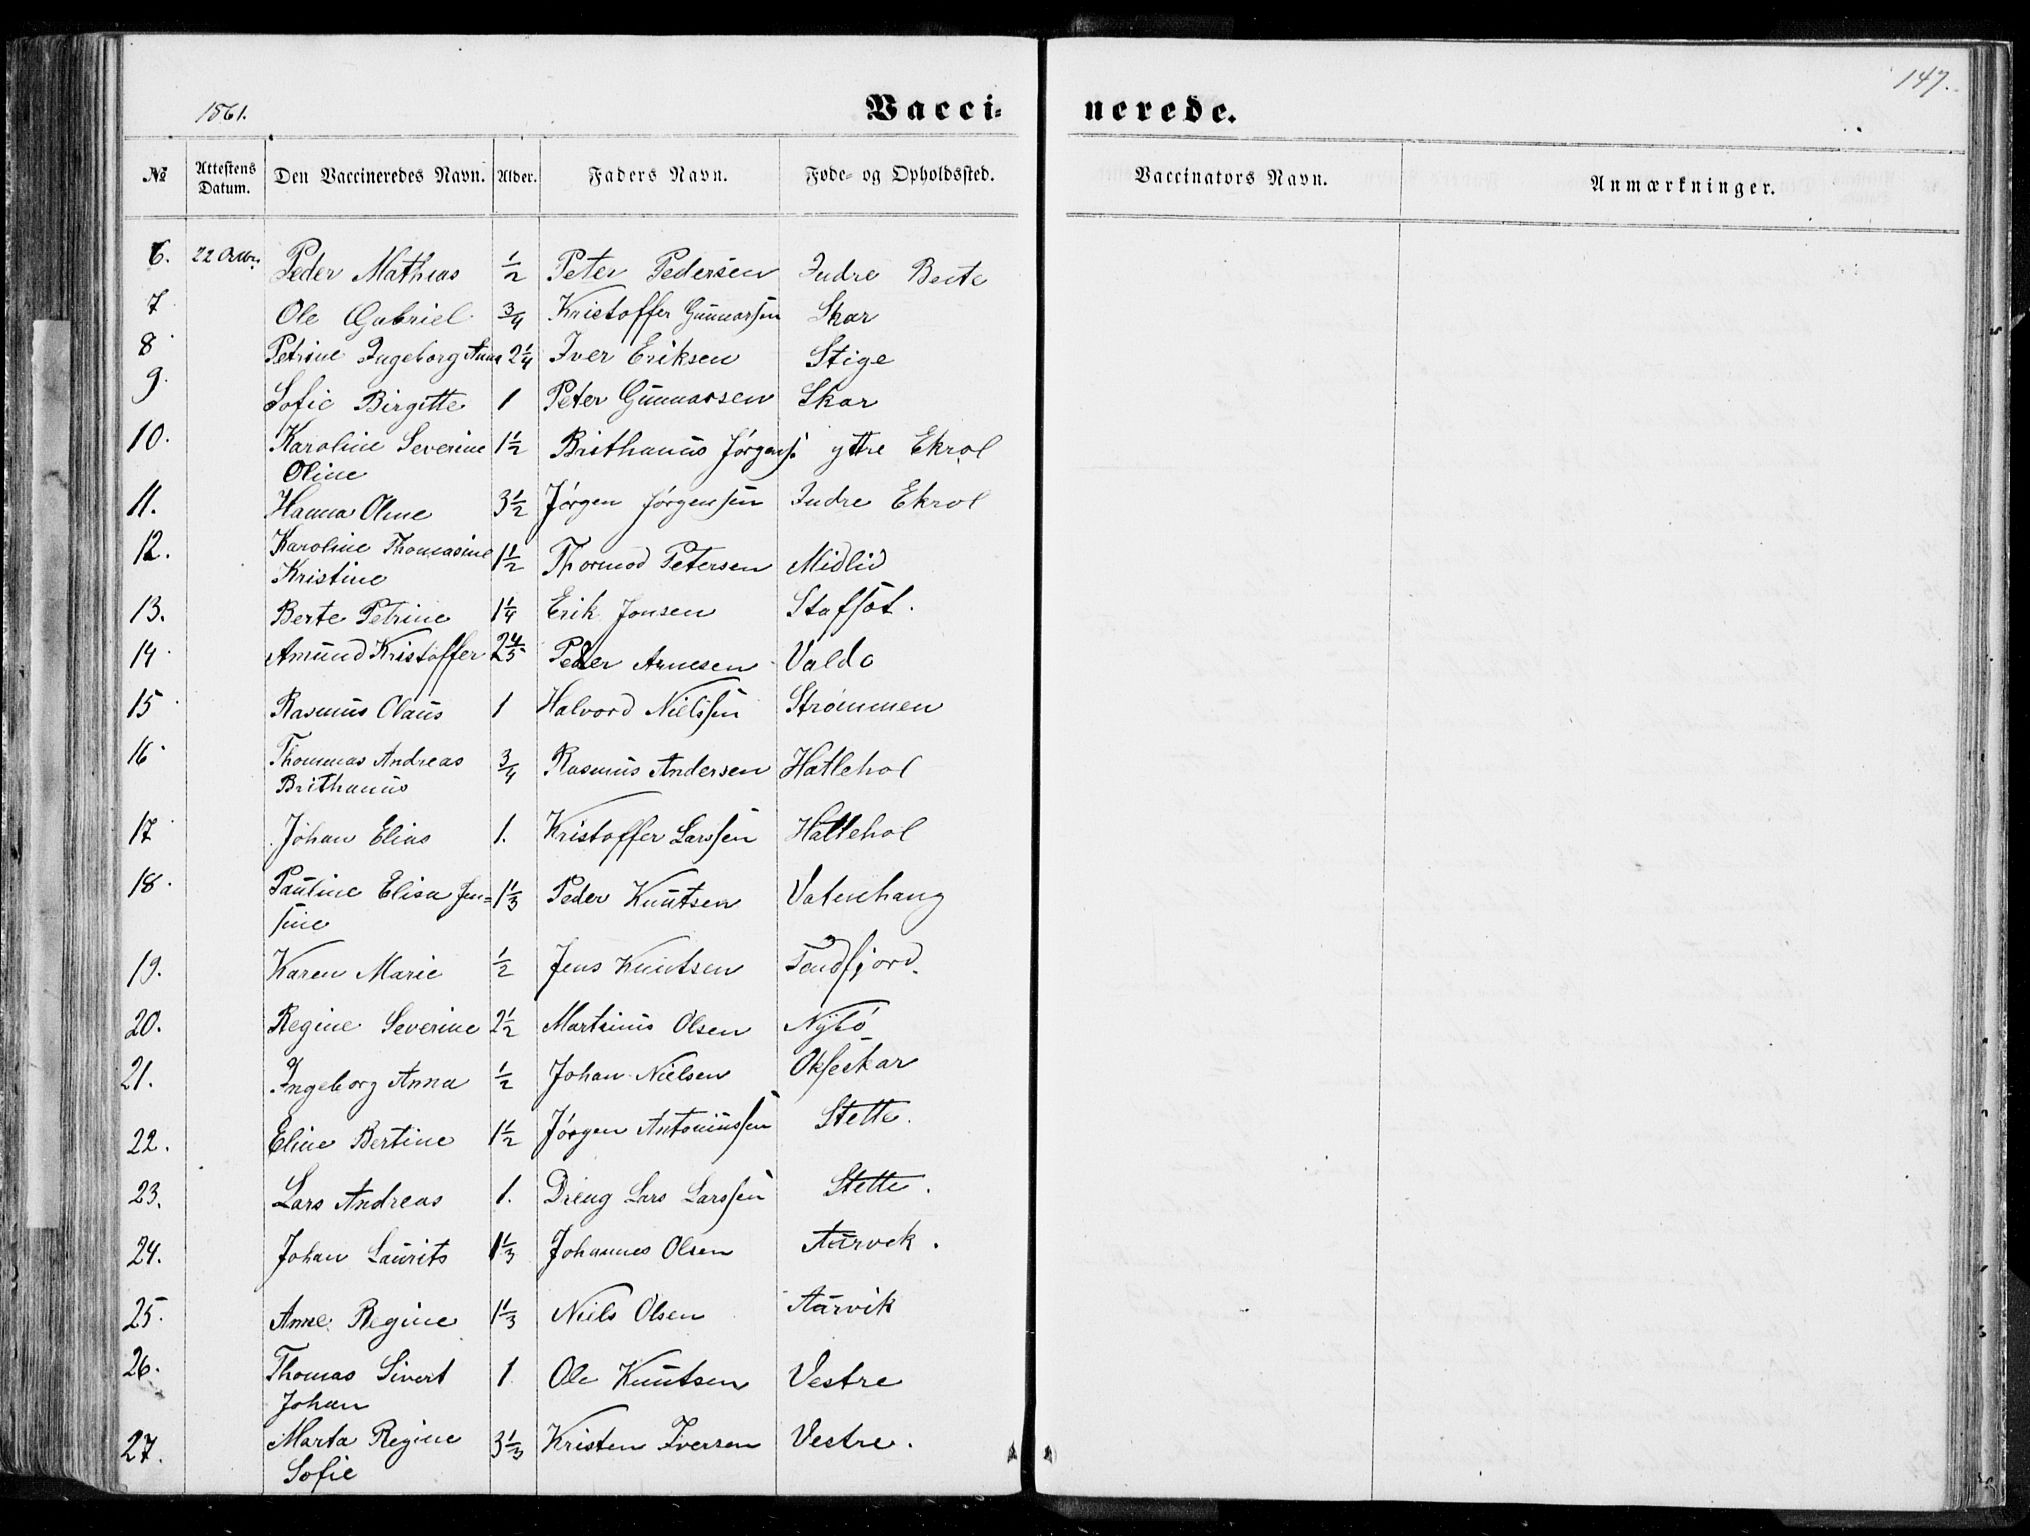 147.
1861. Vacci- nerede.
No Attestens Datum. Den Vaccineredes Navn. Alder. Faders Navn. Føde- og Opholdssted. Vaccinators Navn. Anmærkninger.
6. 22 Octbr. Peder Mathias 1/2 Peter Pedersen Indre Beite
7 Ole Gabriel 3/4 Kristoffer Gunnarsen Skar
8 Petrine Ingeborg Anna 2 1/4 Iver Eriksen Stige
9. Sofie Birgitte 1 Peter Gunnarsen Skar
10. Karoline Severine 1 1/2 Brithanus Jørgens: ytre Ekrol
Oline
11. Hanna Oline 3 1/2 Jørgen Jørgensen Indre Ekrol
12. Karoline Thomasine 1 1/2 Thormod Petersen Midlid
Kristine
13. Berte Petrine 1 1/4 Erik Jonsen Stafsøt.
14 Amund Kristoffer 2 4/5 Peder Arnesen Valde
15 Rasmus Olaus 1 Halvord Nielssen Strømmen
16 Thommas Andreas 3/4 Rasmus Andersen Hatlehol
Brithanus
17 Johan Elias 1. Kristoffer Larssen Hatlehol
18. Pauline Elisa Jen- 1 1/3 Peder Knutsen Vatnehaug
sine
19. Karen Marie 1/2 Jens Knutsen Tendfjord.
20. Regine Severine 2 1/2 Martinus Olsen Nybø
21. Ingeborg Anna 1/2 Johan Nielsen Okseskar
22. Eline Bertine 1 1/2 Jørgen Antoniussen Stette.
23. Lars Andreas 1. Dreng Lars Larssen Stette.
24. Johan Laurits 1 1/3 Johannes Olsen Aurvek.
25. Anne Regine 1 1/3 Niels Olsen Aurvik
26. Thomas Sivert 1 Ole Knutsen Vestre
Johan
27. Marta Regine 3 1/3 Kristen Iversen Vestre.
Sofie